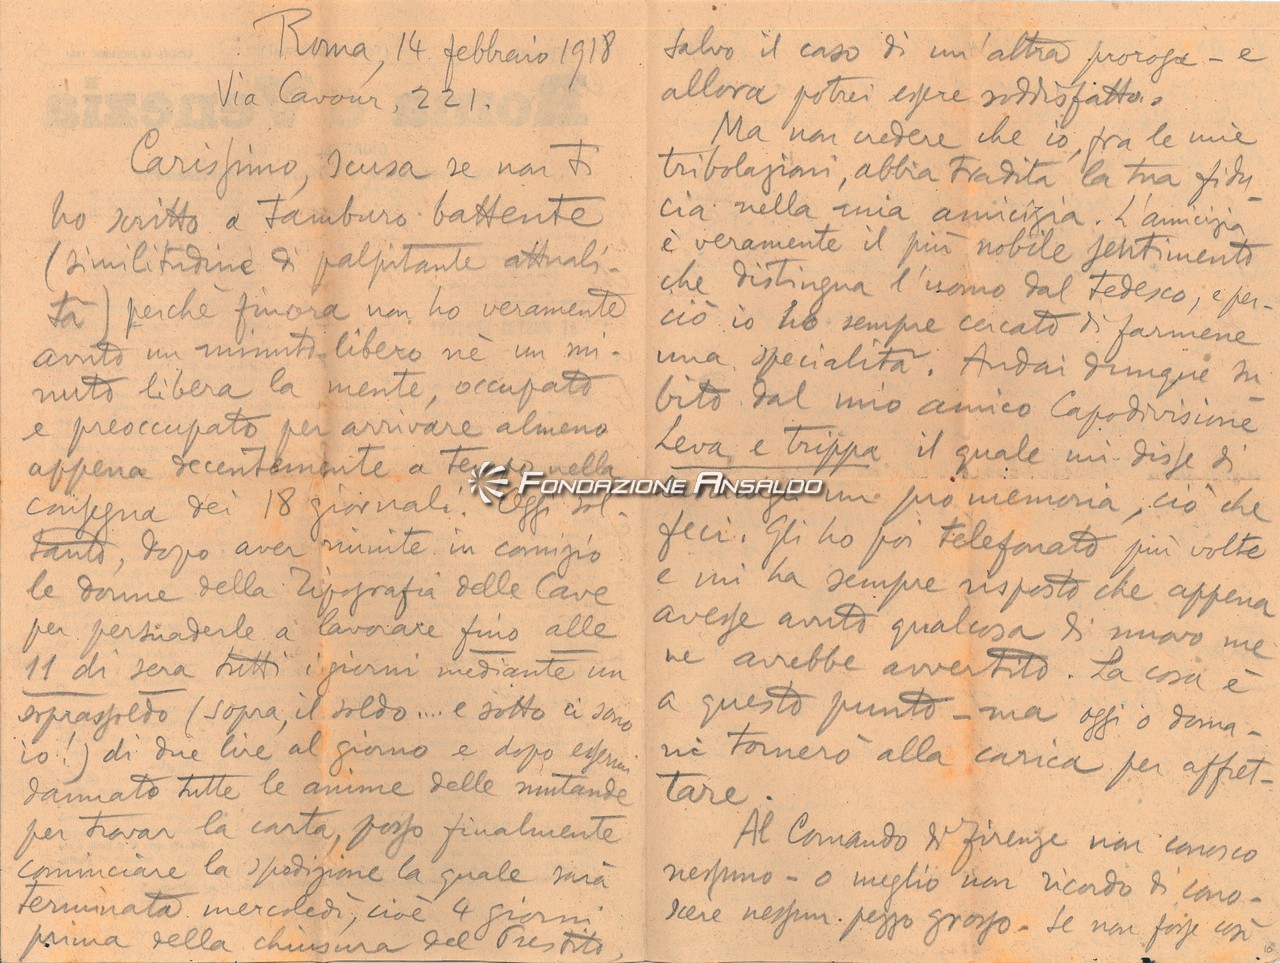 Roma, 14 febbraio 1918
Via Cavour, 221.
Carissimo, scusa se non ti
ho scritto a tamburo battente
(similitudine di palpitante attuali-
tà) perchè finora non ho veramente
avuto un minuto libero nè un mi-
nuto libera la mente, occupato
e preoccupato per arrivare almeno
appena decentemente a tempo nella
consegna dei 18 giornali. Oggi sol-
tanto, dopo aver riunite in comizio
le donne della Tipografia delle Cave
per persuaderle a lavorare fino alle
11 di sera tutti i giorni mediante un
soprassoldo (sopra, il soldo.... e sotto ci sono
io!) di due lire al giorno e dopo essermi
dannato tutte le anime delle mutande
per trovar la carta, posso finalmente
cominciare la spedizione la quale sarà
terminata mercoledì, cioè 4 giorni
prima della chiusura del Prestito,
salvo il caso di un'altra proroga - e
allora potrei essere soddisfatto.
Ma non credere che io, fra le mie
tribolazioni, abbia tradita la tua fidu-
cia nella mia amicizia. L'amicizia
è veramente il più nobile sentimento
che distingua l'uomo dal tedesco, e per-
ciò io ho sempre cercato di farmene
una specialità. Andai dunque su
bito dal mio amico Capodivisione
Leva e trippa il quale mi disse di
un pro memoria, ciò che
feci. Gli ho poi telefonato più volte
e mi ha sempre risposto che appena
avesse avuto qualcosa di nuovo me
ne avrebbe avvertito. La cosa è
a questo punto - ma oggi o doma-
ni tornerò alla carica per affret-
tare.
Al Comando di Firenze non conosco
nessuno - o meglio non ricordo di cono-
scere nessun pezzo grosso. Se non fosse così
Fondazione Ansaldo